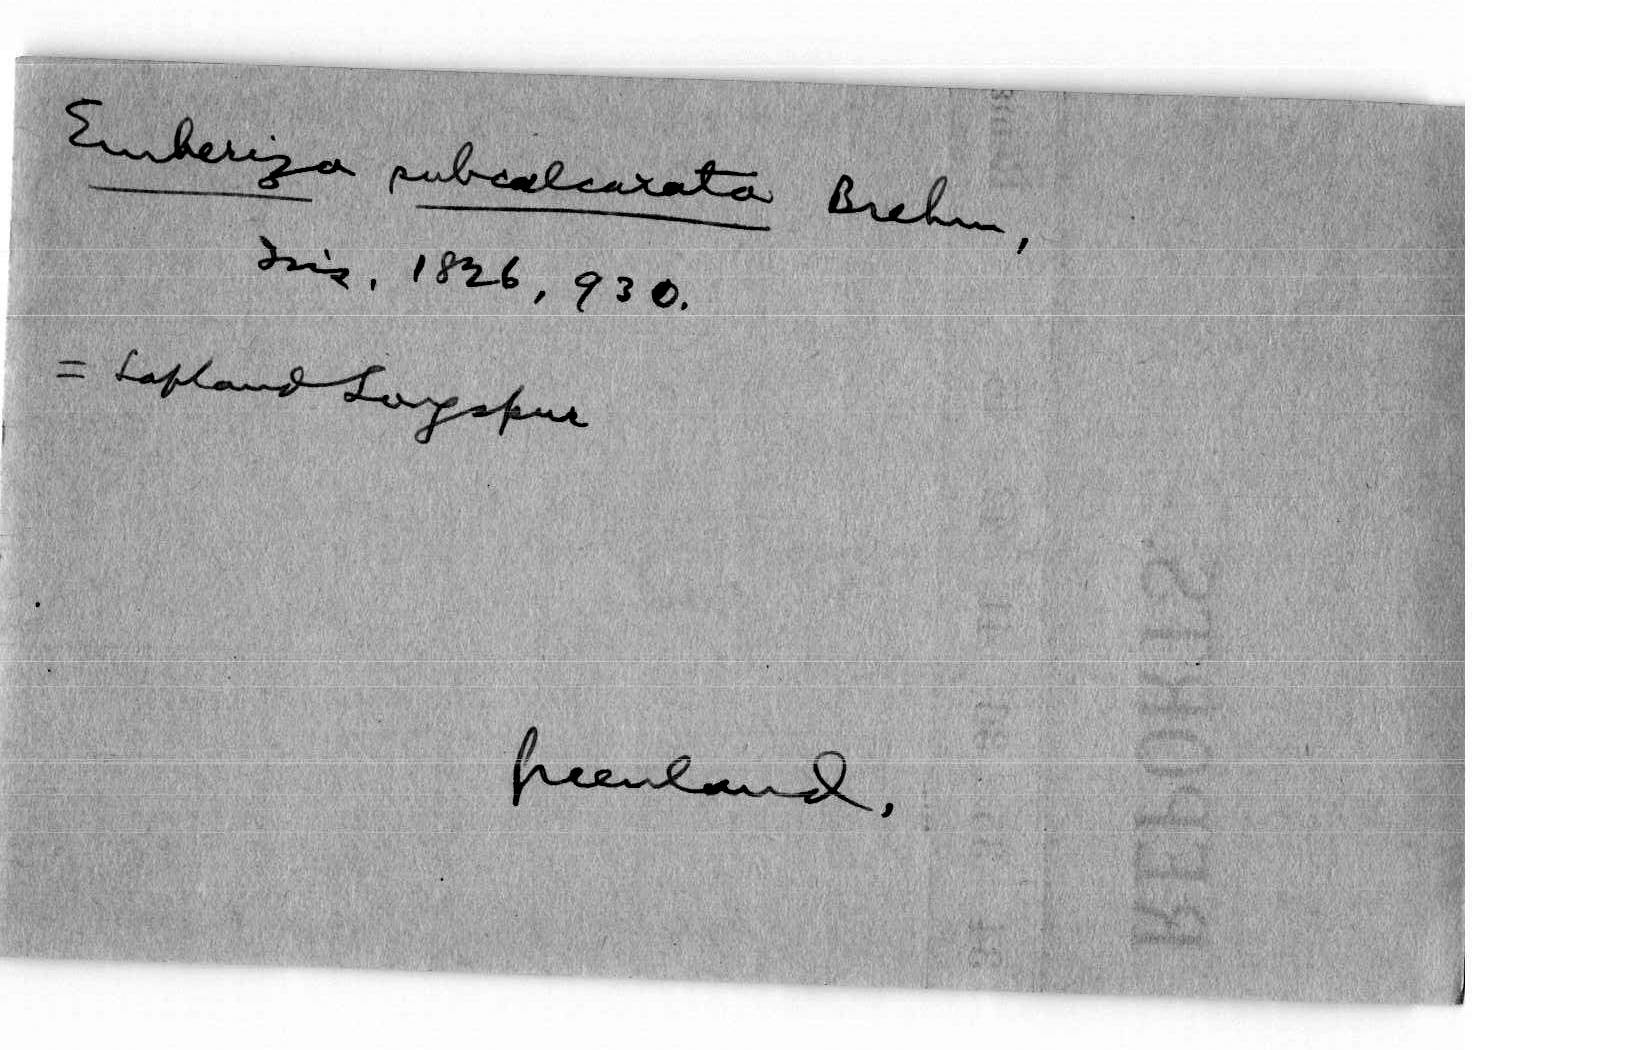 Emberiza subcalcarata Brehm,
Isis, 1826, 930.
= Lapland Longspur
Greenland.
REPORTS.